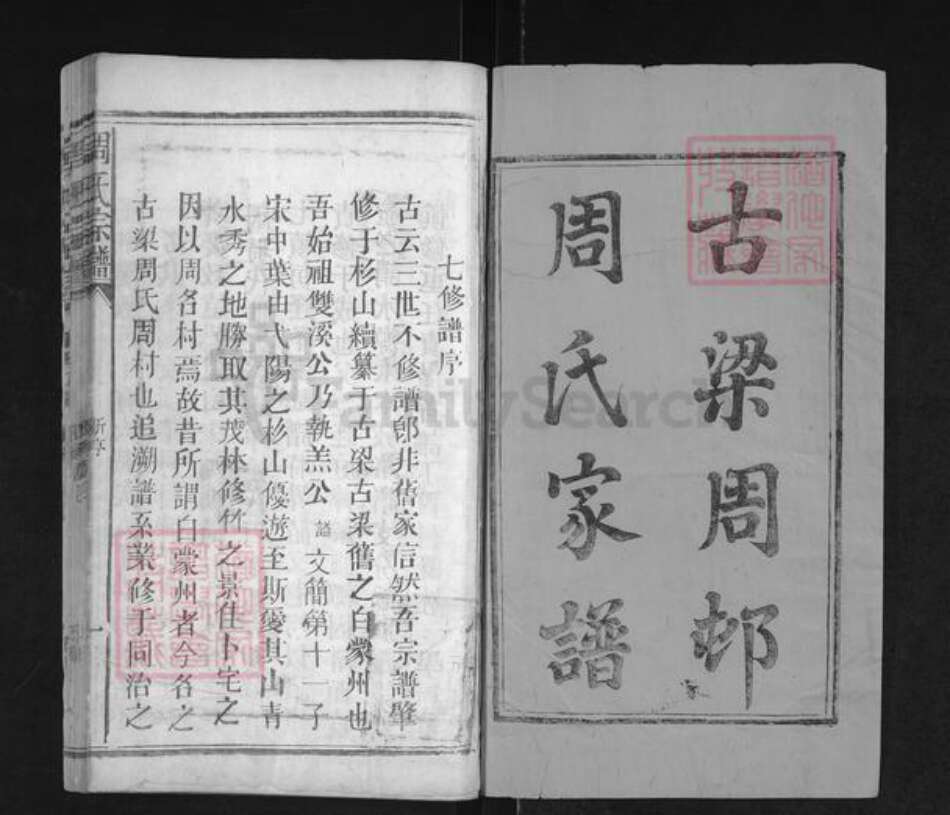 古梁周邨
周氏家譜
七修譜序
古云三世不修譜即非舊家信然吾宗譜肇
修于杉山續纂于古梁古梁舊之白蒙州也
吾始祖雙溪公乃執羔公諡文簡第十一子
宋中葉由弋陽之杉山優遊至斯愛其山青
水秀之地勝取其茂林修竹之景佳卜宅之
因以周名村焉故昔所謂白蒙州者今名之
古梁周氏周村也追溯譜系業修于同治之
周氏宗譜
新序
一
FamilySearch